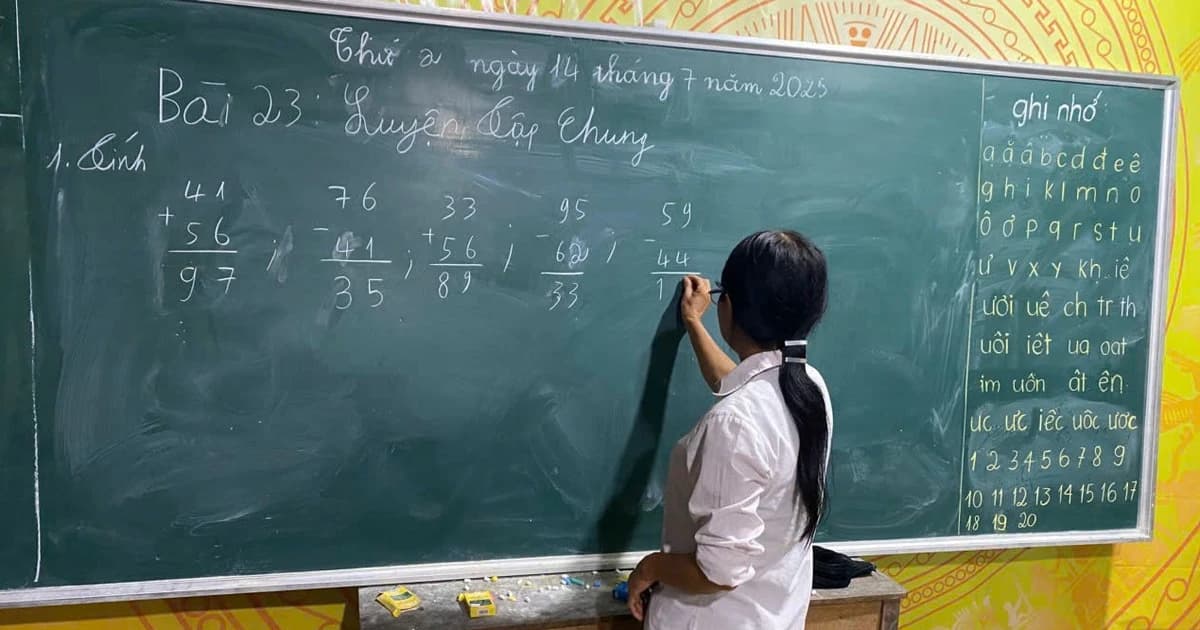 Thứ 2 ngày 14 tháng 7 năm 2025
Bài 23: Luyện tập chung
1. Tính
41 + 56 97 ; 76 - 41 35 ; 33 + 56 89 ; 95 - 62 33 ; 59 - 44 1
ghi nhớ:
a ă â b c d đ e ê
g h i k l m n o
ô ơ p q r s t u
ư v x y kh iê
ươi uê ch tr th
uôi iêt ua oat
im uôn ât ên
uc ưc iêc uôc ươc
1 2 3 4 5 6 7 8 9
10 11 12 13 14 15 16 17
18 19 20